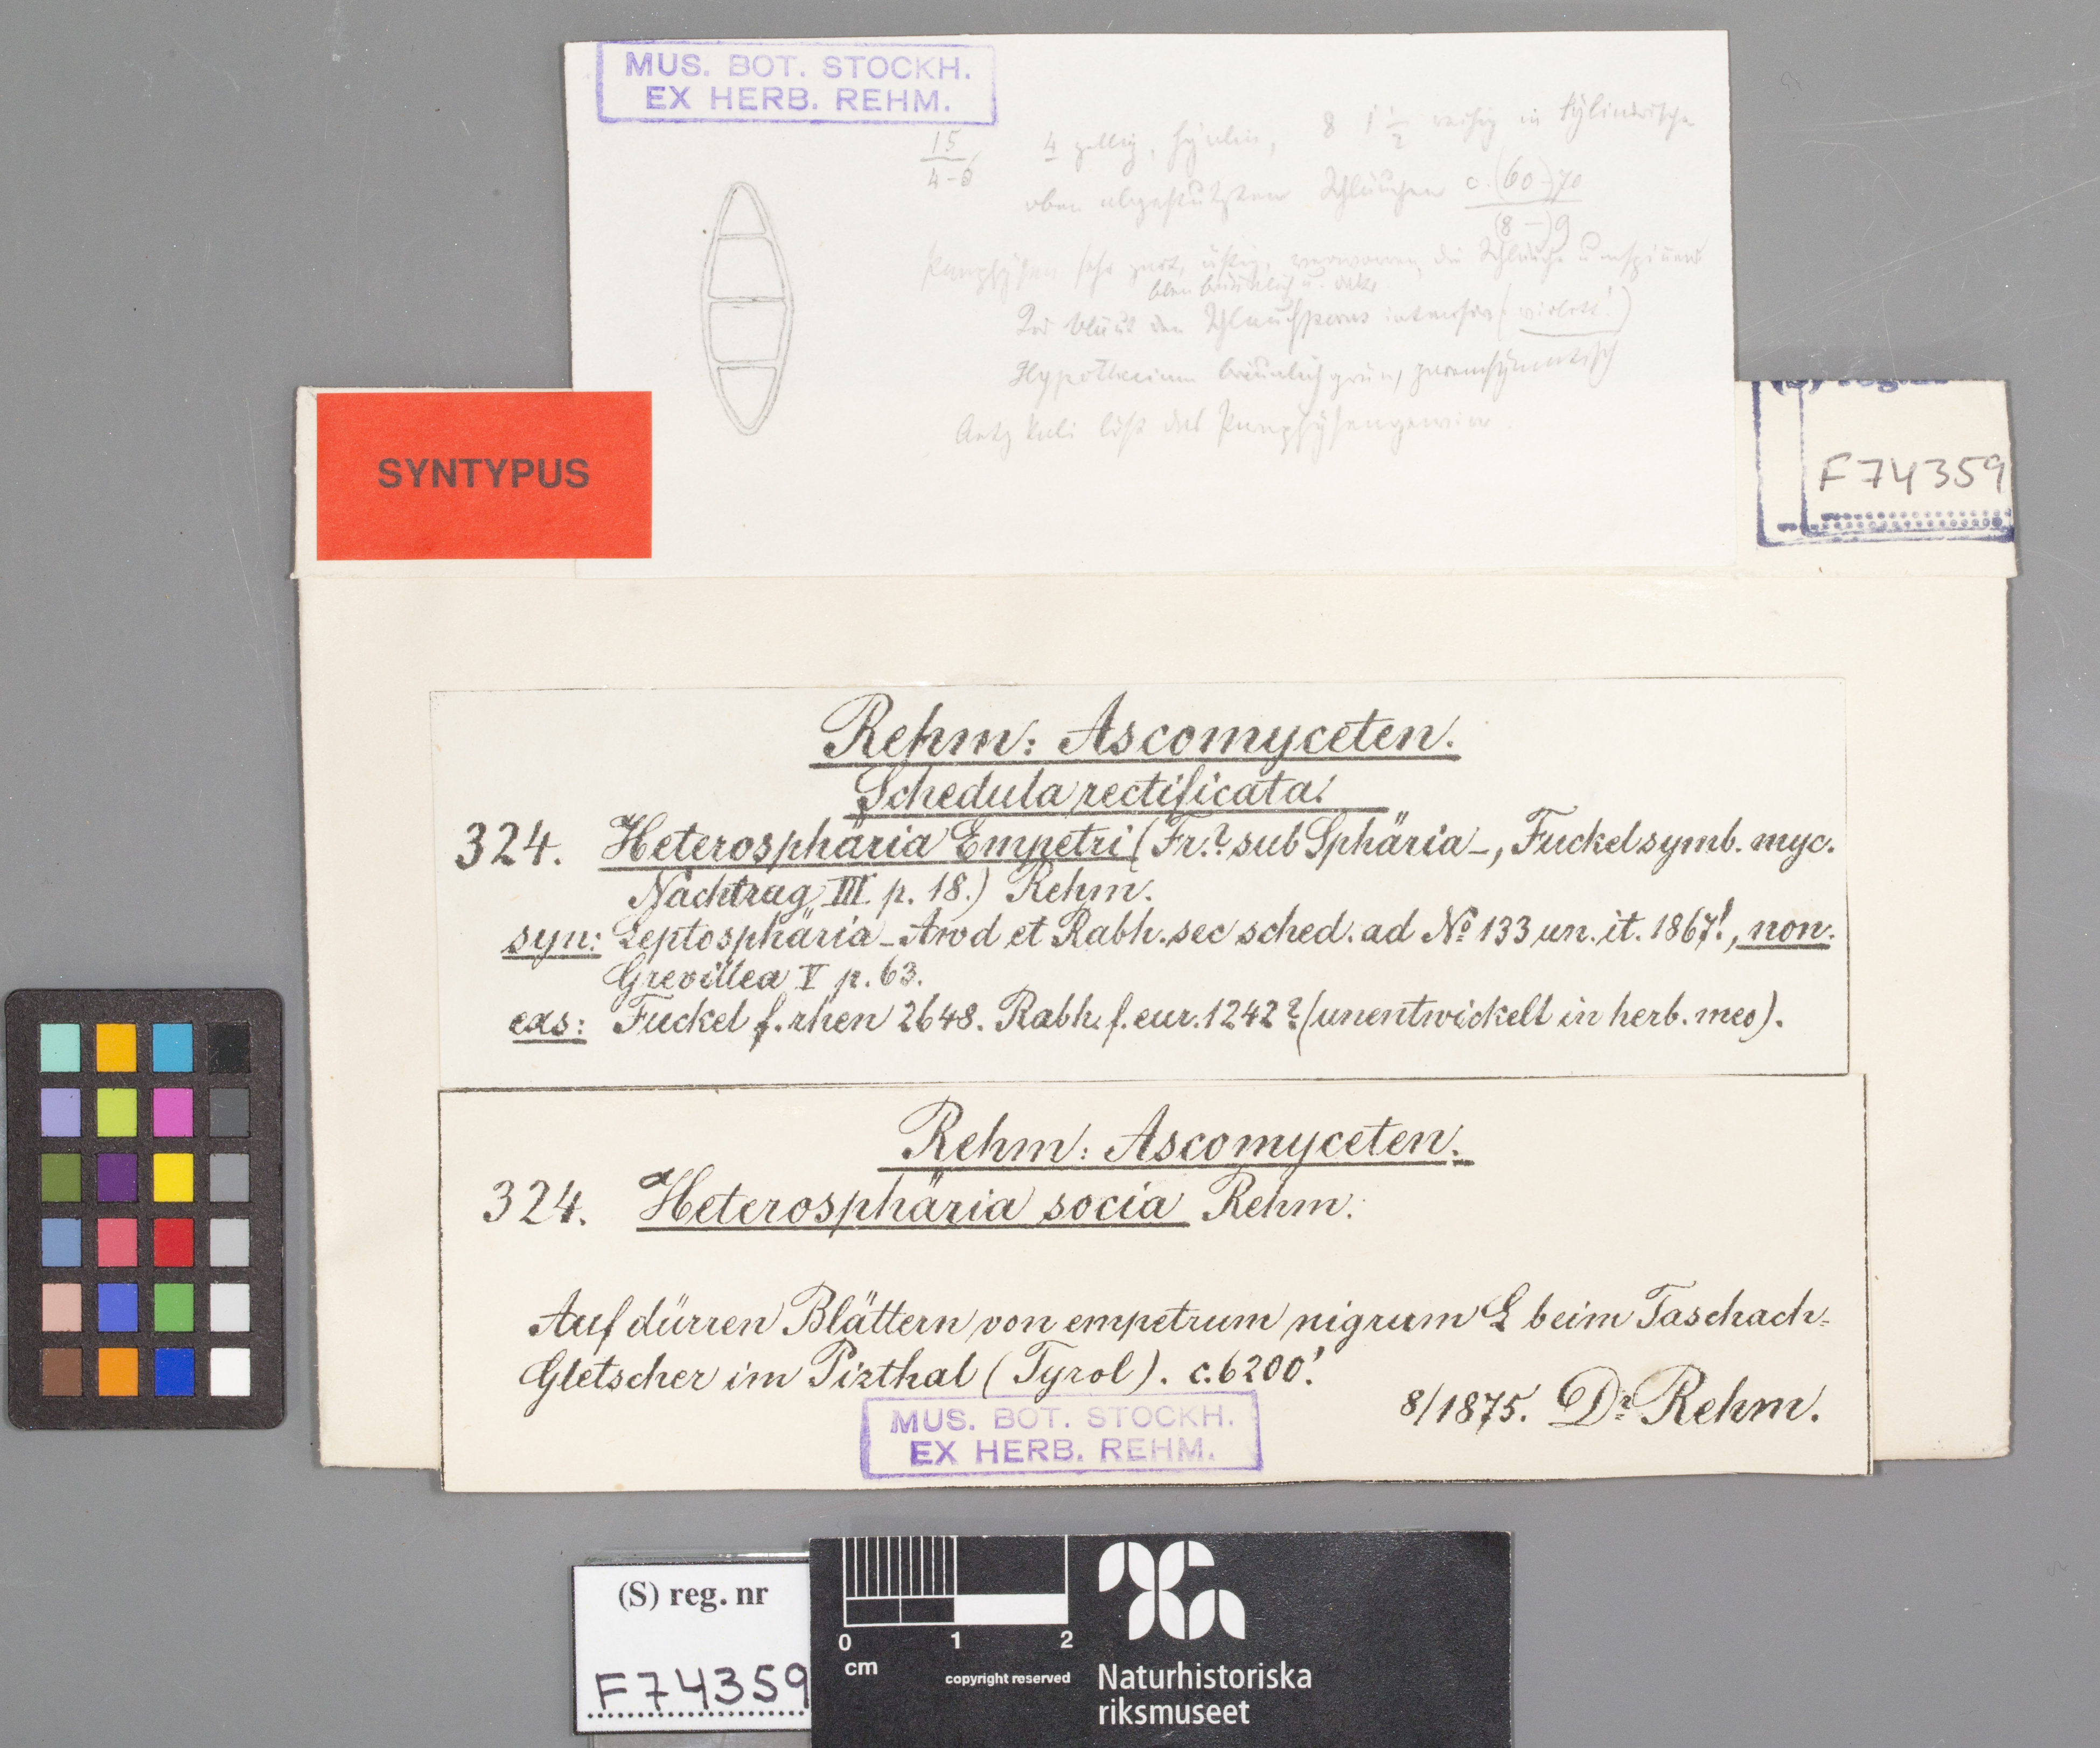 MUS. BOT. STOCKH.
EX HERB. REHM.
15
4-6
4 zellig, hyalin, 8 1 1/2 reihig in
oben abgestutzten Schläuchen c. (60-)70
(8-)9
Paraphysen sehr zart, ästig, verworren, die Schläuche
Jod bläut den Schlauchporus intensiv (violett!)
Hypothecium bräunlichgrün, parenchymatisch
Aetzkali löst das
SYNTYPUS
F74359
Rehm: Ascomyceten.
Schedula rectificata!
324. Heterosphäria Empetri (Fr.? sub Sphäria-, Fuckel symb. myc.
Nachtrag III p. 18.) Rehm.
syn: Leptosphäria - Awd et Rabh. sec sched. ad No 133 un. it. 1867!, non.
Grevillea V p. 63.
exs: Fuckel f. rhen 2648. Rabh. f. eur. 1242? (unentwickelt in herb. meo).
Rehm: Ascomyceten.
324. Heterosphäria socia Rehm.
Auf dürren Blättern von empetrum nigrum L beim Taschach-
Gletscher im Pizthal (Tyrol). c. 6200'.
8/1875. Dr Rehm.
MUS. BOT. STOCKH.
EX HERB. REHM.
(S) reg. nr
F74359
0 1 2
cm
copyright reserved
Naturhistoriska
riksmuseet